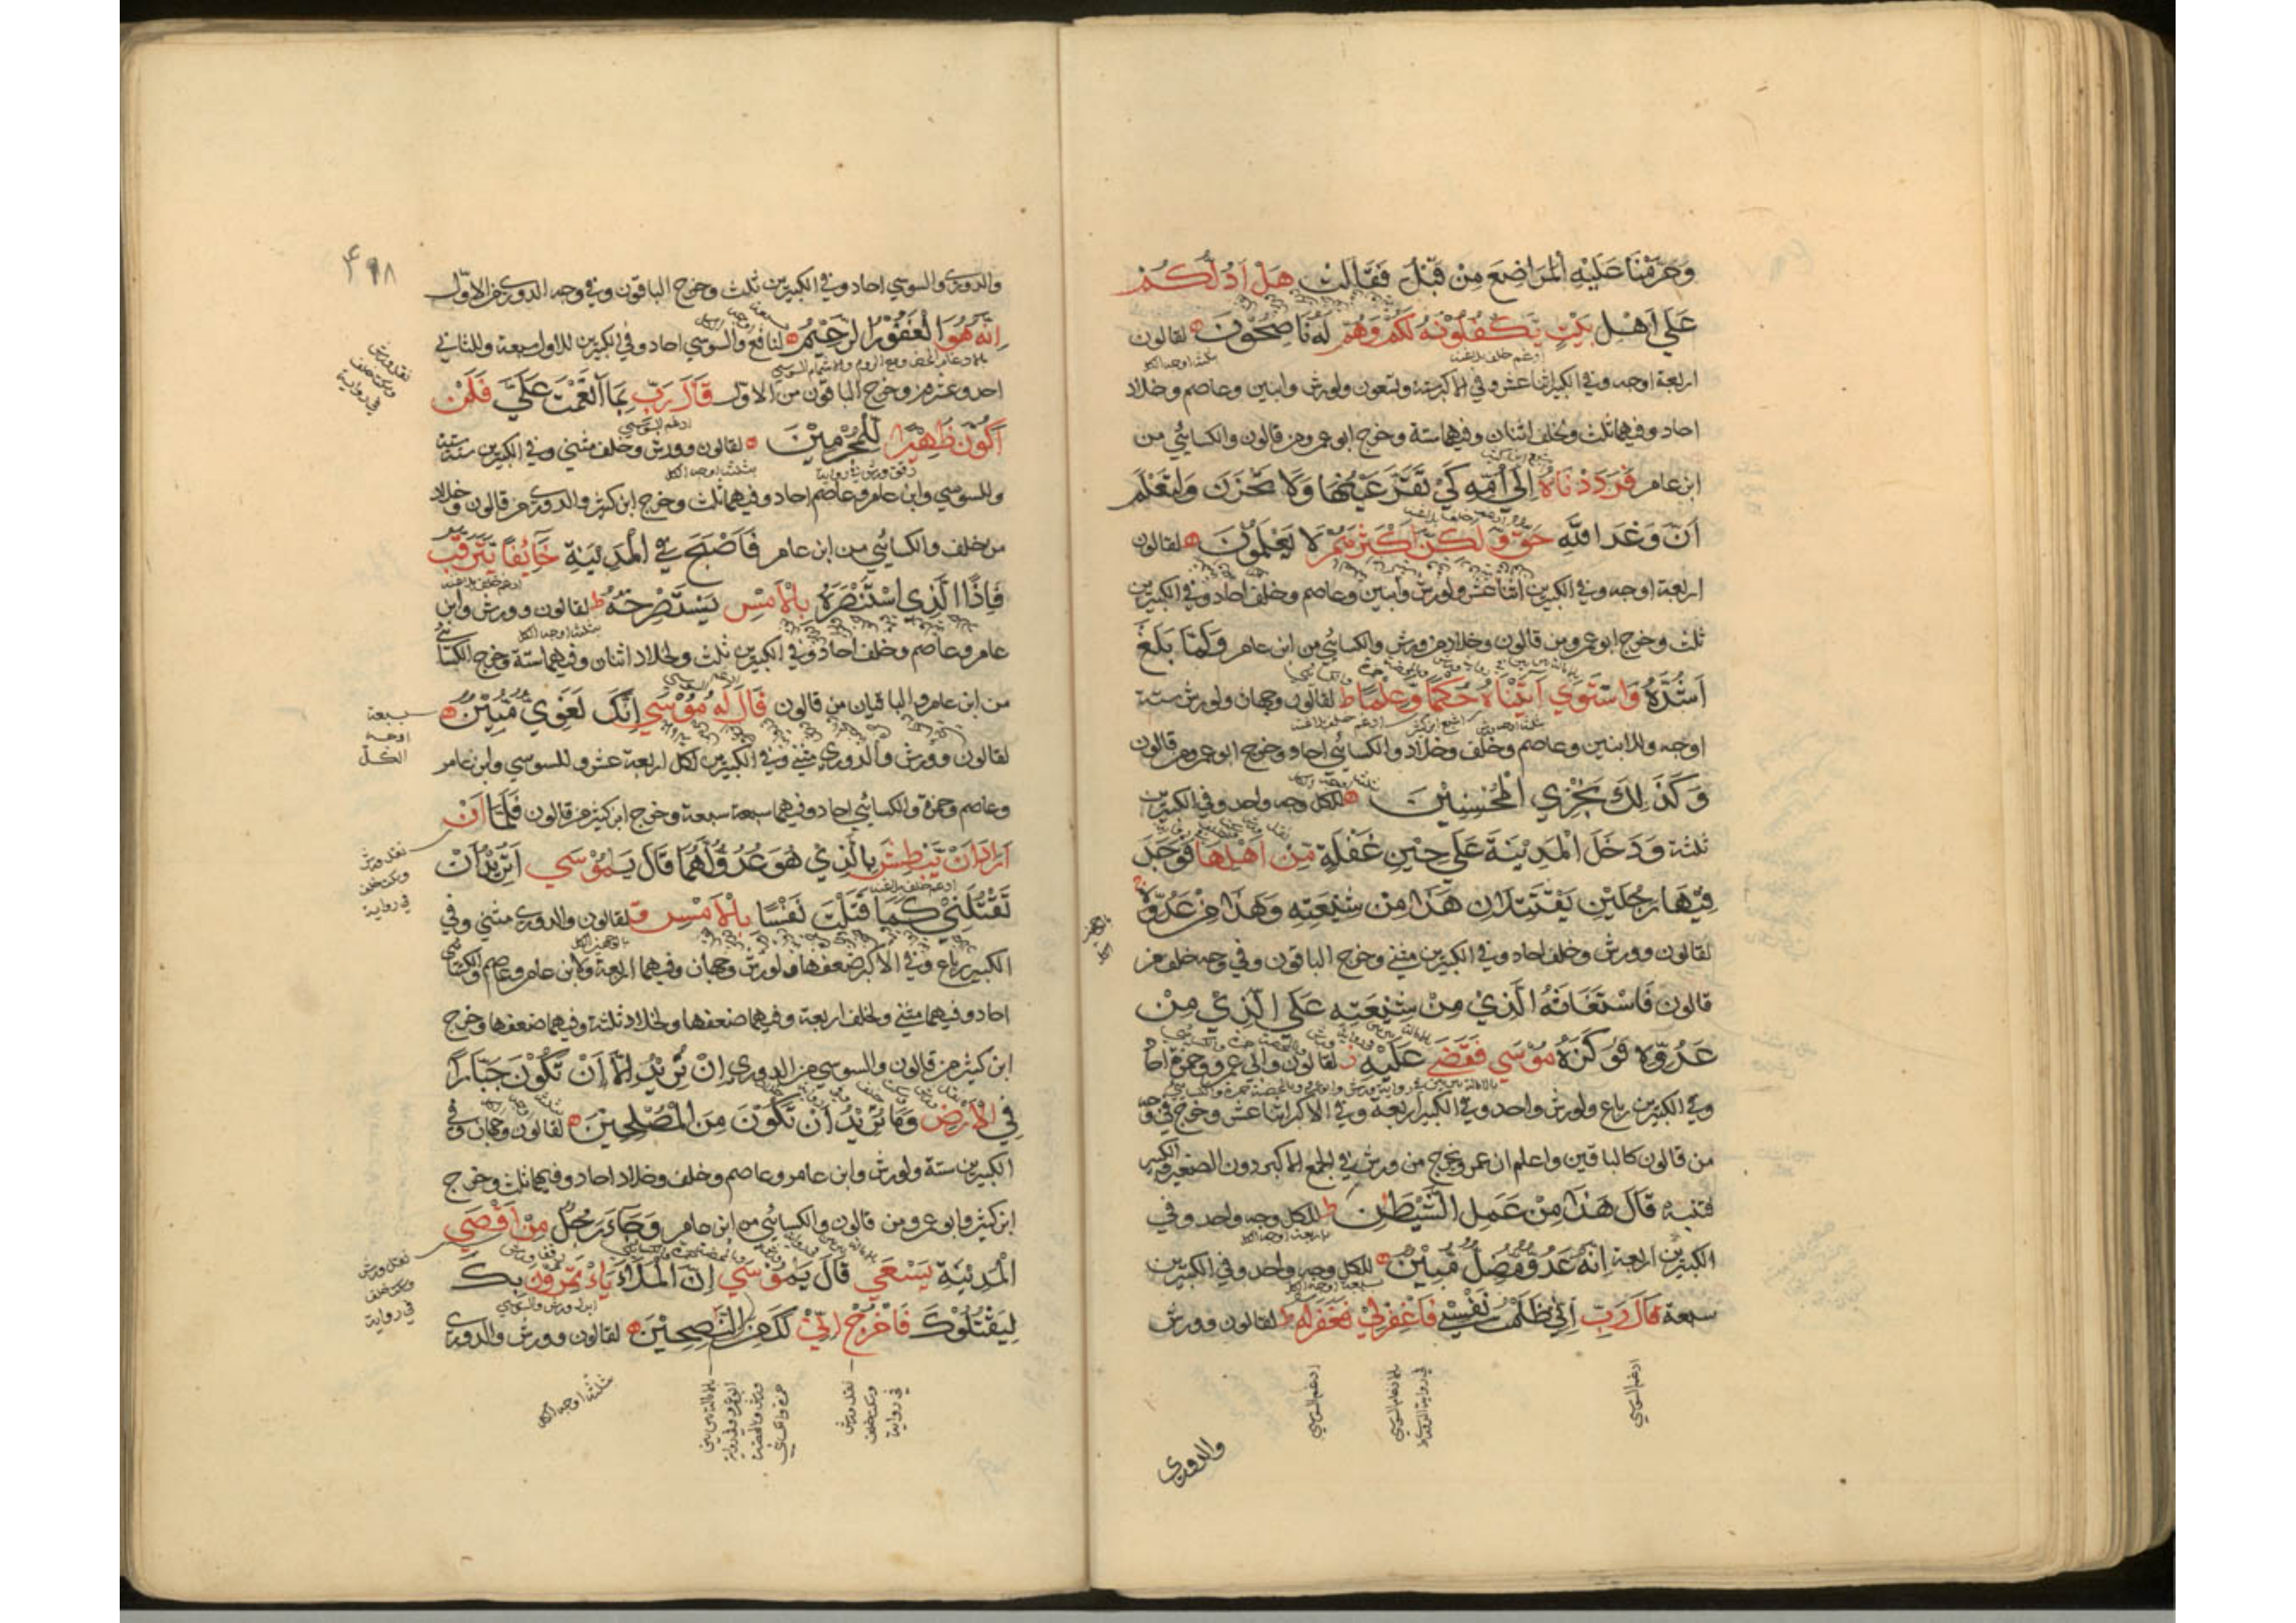 وَحَرَّمْنَا عَلَيْهِ الْمَرَاضِعَ مِنْ قَبْلُ فَقَالَتْ هَلْ اَدُلُّكُمْ
عَلَي اَهْلِ بَيْتٍ يَّكْفُلُوْنَهُ لَكُمْ وَهُمْ لَهُ نَاصِحُوْنَ لقالون
اربعة اوجه وفي الكبير اثنا عشر وفي الاكبر ستة ولورش وابنين وعاصم وخلاد
احاد وفيهما ثلث ولخلف اثنان وفيهما ستة وخرج ابو عمرو من قالون والكسائي من
ابن عامر فَرَدَدْنَاهُ اِلَي اُمِّهِ كَيْ تَقَرَّ عَيْنُهَا وَلَا تَحْزَنَ وَلِتَعْلَمَ
اَنَّ وَعْدَ اللّٰهِ حَقٌّ وَّلَكِنَّ اَكْثَرَهُمْ لَا يَعْلَمُوْنَ لقالون
اربعة اوجه وفي الكبيرين اثنا عشر ولورش وابنين وعاصم وخلف احاد وفي الكبيرين
ثلث وخرج ابو عمرو من قالون وخلاد من ورش والكسائي من ابن عامر وَلَمَّا بَلَغَ
اَشُدَّهُ وَاسْتَوَي آتَيْنَاهُ حُكْمًا وَّعِلْمًا ط لقالون وجهان ولورش ستة
اوجه وللابنين وعاصم وخلف وخلاد والكسائي احاد وخرج ابو عمرو من قالون
وَكَذَلِكَ نَجْزِي الْمُحْسِنِيْنَ للكل وجه واحد وفي الكبيرين
ثلثة وَدَخَلَ الْمَدِيْنَةَ عَلَي حِيْنِ غَفْلَةٍ مِّنْ اَهْلِهَا فَوَجَدَ
فِيْهَا رَجُلَيْنِ يَقْتَتِلَانِ هَذَا مِنْ شِيْعَتِهِ وَهَذَا مِنْ عَدُوِّهِ
لقالون وورش وخلف احاد وفي الكبيرين مثني وخرج الباقون وفي وجه خلف من
قالون فَاسْتَغَاثَهُ الَّذِيْ مِنْ شِيْعَتِهِ عَلَي الَّذِيْ مِنْ
عَدُوِّهِ فَوَكَزَهُ مُوْسَي فَقَضَي عَلَيْهِ ز لقالون وابي عمرو وحمزة احاد
وفي الكبيرين رباع ولورش واحد وفي الكبير اربعة وفي الاكبر اثنا عشر وخرج في وجه
من قالون كالباقين واعلم ان عمرو يخرج من ورش في الجمع الاكبر دون الصغير والكبير
فتنبه قَالَ هَذَا مِنْ عَمَلِ الشَّيْطٰنِ ط للكل وجه واحد وفي
الكبيرين اربعة اِنَّهُ عَدُوٌّ مُّضِلٌّ مُّبِيْنٌ للكل وجه واحد وفي الكبيرين
سبعة قَالَ رَبِّ اِنِّيْ ظَلَمْتُ نَفْسِيْ فَاغْفِرْلِيْ فَغَفَرَ لَهُ ط لقالون وورش
ادغم السوسي
ادغم السوسي
والدوري
۴۹۸
والدوري والسوسي احاد وفي الكبيرين ثلث وخرج الباقون وفي وجه الدوري من الاول
اِنَّهُ هُوَ الْغَفُوْرُ الرَّحِيْمُ لنافع والسوسي احاد وفي الكبيرين للاول سبعة وللثاني
احد وعشرون وخرج الباقون من الاول قَالَ رَبِّ بِمَا اَنْعَمْتَ عَلَيَّ فَلَنْ
اَكُوْنَ ظَهِيْرًا لِّلْمُجْرِمِيْنَ لقالون وورش وخلف مثني وفي الكبيرين ستة ستة
وللسوسي وابن عامر وعاصم احاد وفيهما ثلث وخرج ابن كثير والدوري من قالون وخلاد
من خلف والكسائي من ابن عامر فَاَصْبَحَ فِي الْمَدِيْنَةِ خَائِفًا يَّتَرَقَّبُ
فَاِذَا الَّذِي اسْتَنْصَرَهُ بِالْاَمْسِ يَسْتَصْرِخُهُ ط لقالون وورش وابن
عامر وعاصم وخلف احاد وفي الكبيرين ثلث ولخلاد اثنان وفيهما ستة وخرج الكسائي
من ابن عامر والباقيان من قالون قَالَ لَهُ مُوْسَي اِنَّكَ لَغَوِيٌّ مُّبِيْنٌ
سبعة اوجه الكل
لقالون وورش والدوري مثني وفي الكبيرين لكل اربعة عشر وللسوسي وابن عامر
وعاصم وحمزة والكسائي احاد وفيهما سبعة سبعة وخرج ابن كثير من قالون فَلَمَّا اَنْ
اَرَادَ اَنْ يَّبْطِشَ بِالَّذِيْ هُوَ عَدُوٌّ لَّهُمَا قَالَ يَامُوْسَي اَتُرِيْدُ اَنْ
نقل ورش وسكت خلف في رواية
تَقْتُلَنِيْ كَمَا قَتَلْتَ نَفْسًا بِالْاَمْسِ ق لقالون والدوري مثني وفي
الكبير رباع وفي الاكبر ضعفها ولورش وجهان وفيهما اربعة ولابن عامر وعاصم والكسائي
احاد وفيهما مثني ولخلف اربعة وفيهما ضعفها ولخلاد ثلثة وفيهما ضعفها وخرج
ابن كثير من قالون والسوسي من الدوري اِنْ تُرِيْدُ اِلَّا اَنْ تَكُوْنَ جَبَّارًا
فِي الْاَرْضِ وَمَا تُرِيْدُ اَنْ تَكُوْنَ مِنَ الْمُصْلِحِيْنَ لقالون وجهان وفي
الكبيرين ستة ولورش وابن عامر وعاصم وخلف وخلاد احاد وفيهما ثلث وخرج
ابن كثير وابو عمرو من قالون والكسائي من ابن عامر وَجَاءَ رَجُلٌ مِّنْ اَقْصَي
الْمَدِيْنَةِ يَسْعَي قَالَ يَمُوْسَي اِنَّ الْمَلَاَ يَاْتَمِرُوْنَ بِكَ
نقل ورش وسكت خلف في رواية
لِيَقْتُلُوْكَ فَاخْرُجْ اِنِّيْ لَكَ مِنَ النّٰصِحِيْنَ لقالون وورش والدوري
نقل ورش وسكت خلف في رواية
ثلثة اوجه الكل